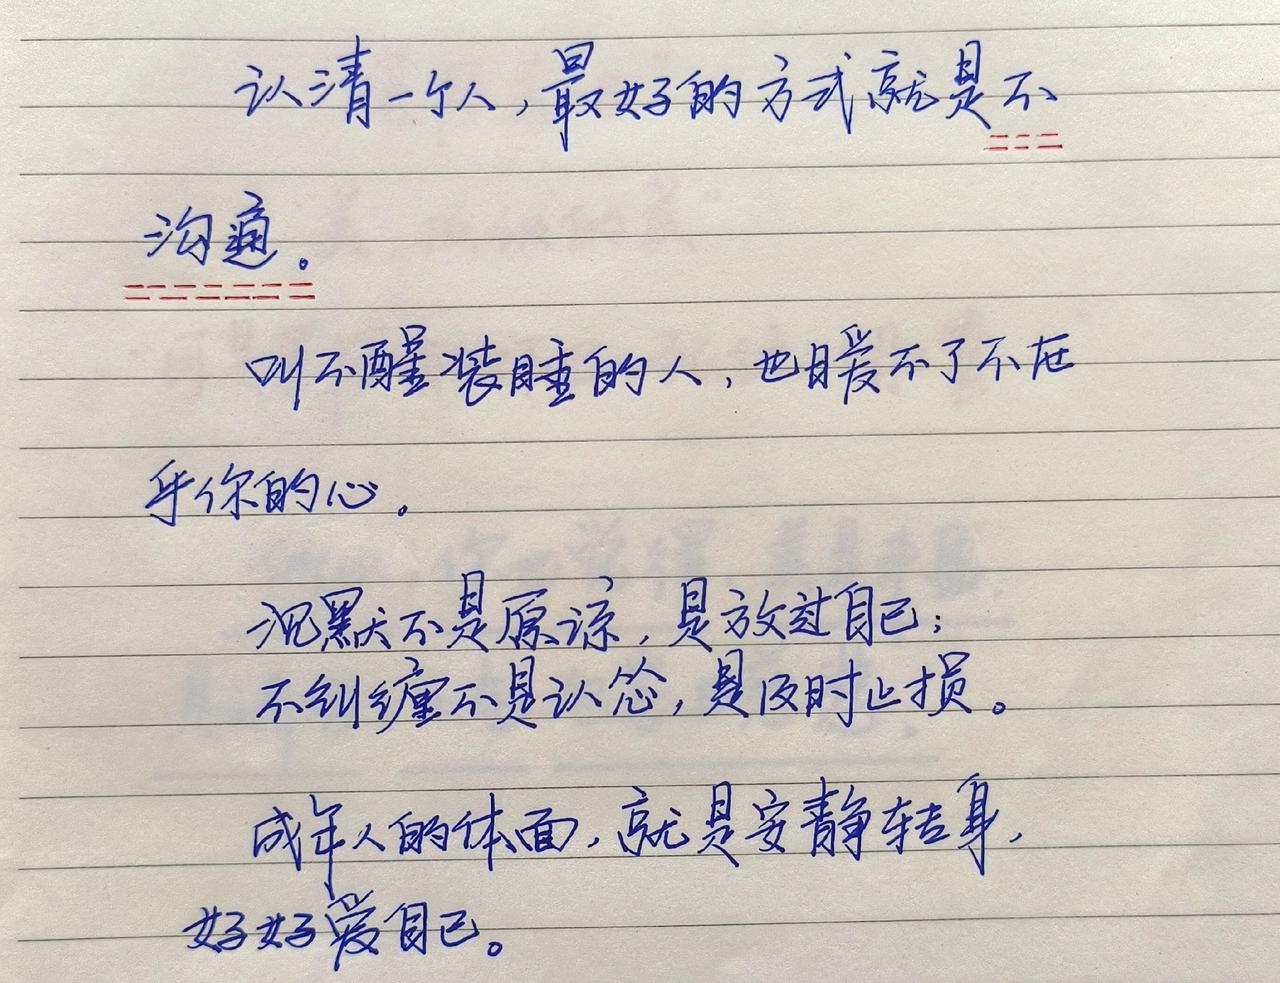 认清一个人，最好的方式就是不
沟通。
叫不醒装睡的人，也暖不了不在
乎你的心。
沉默不是原谅，是放过自己；
不纠缠不是认怂，是及时止损。
成年人的体面，就是安静转身，
好好爱自己。